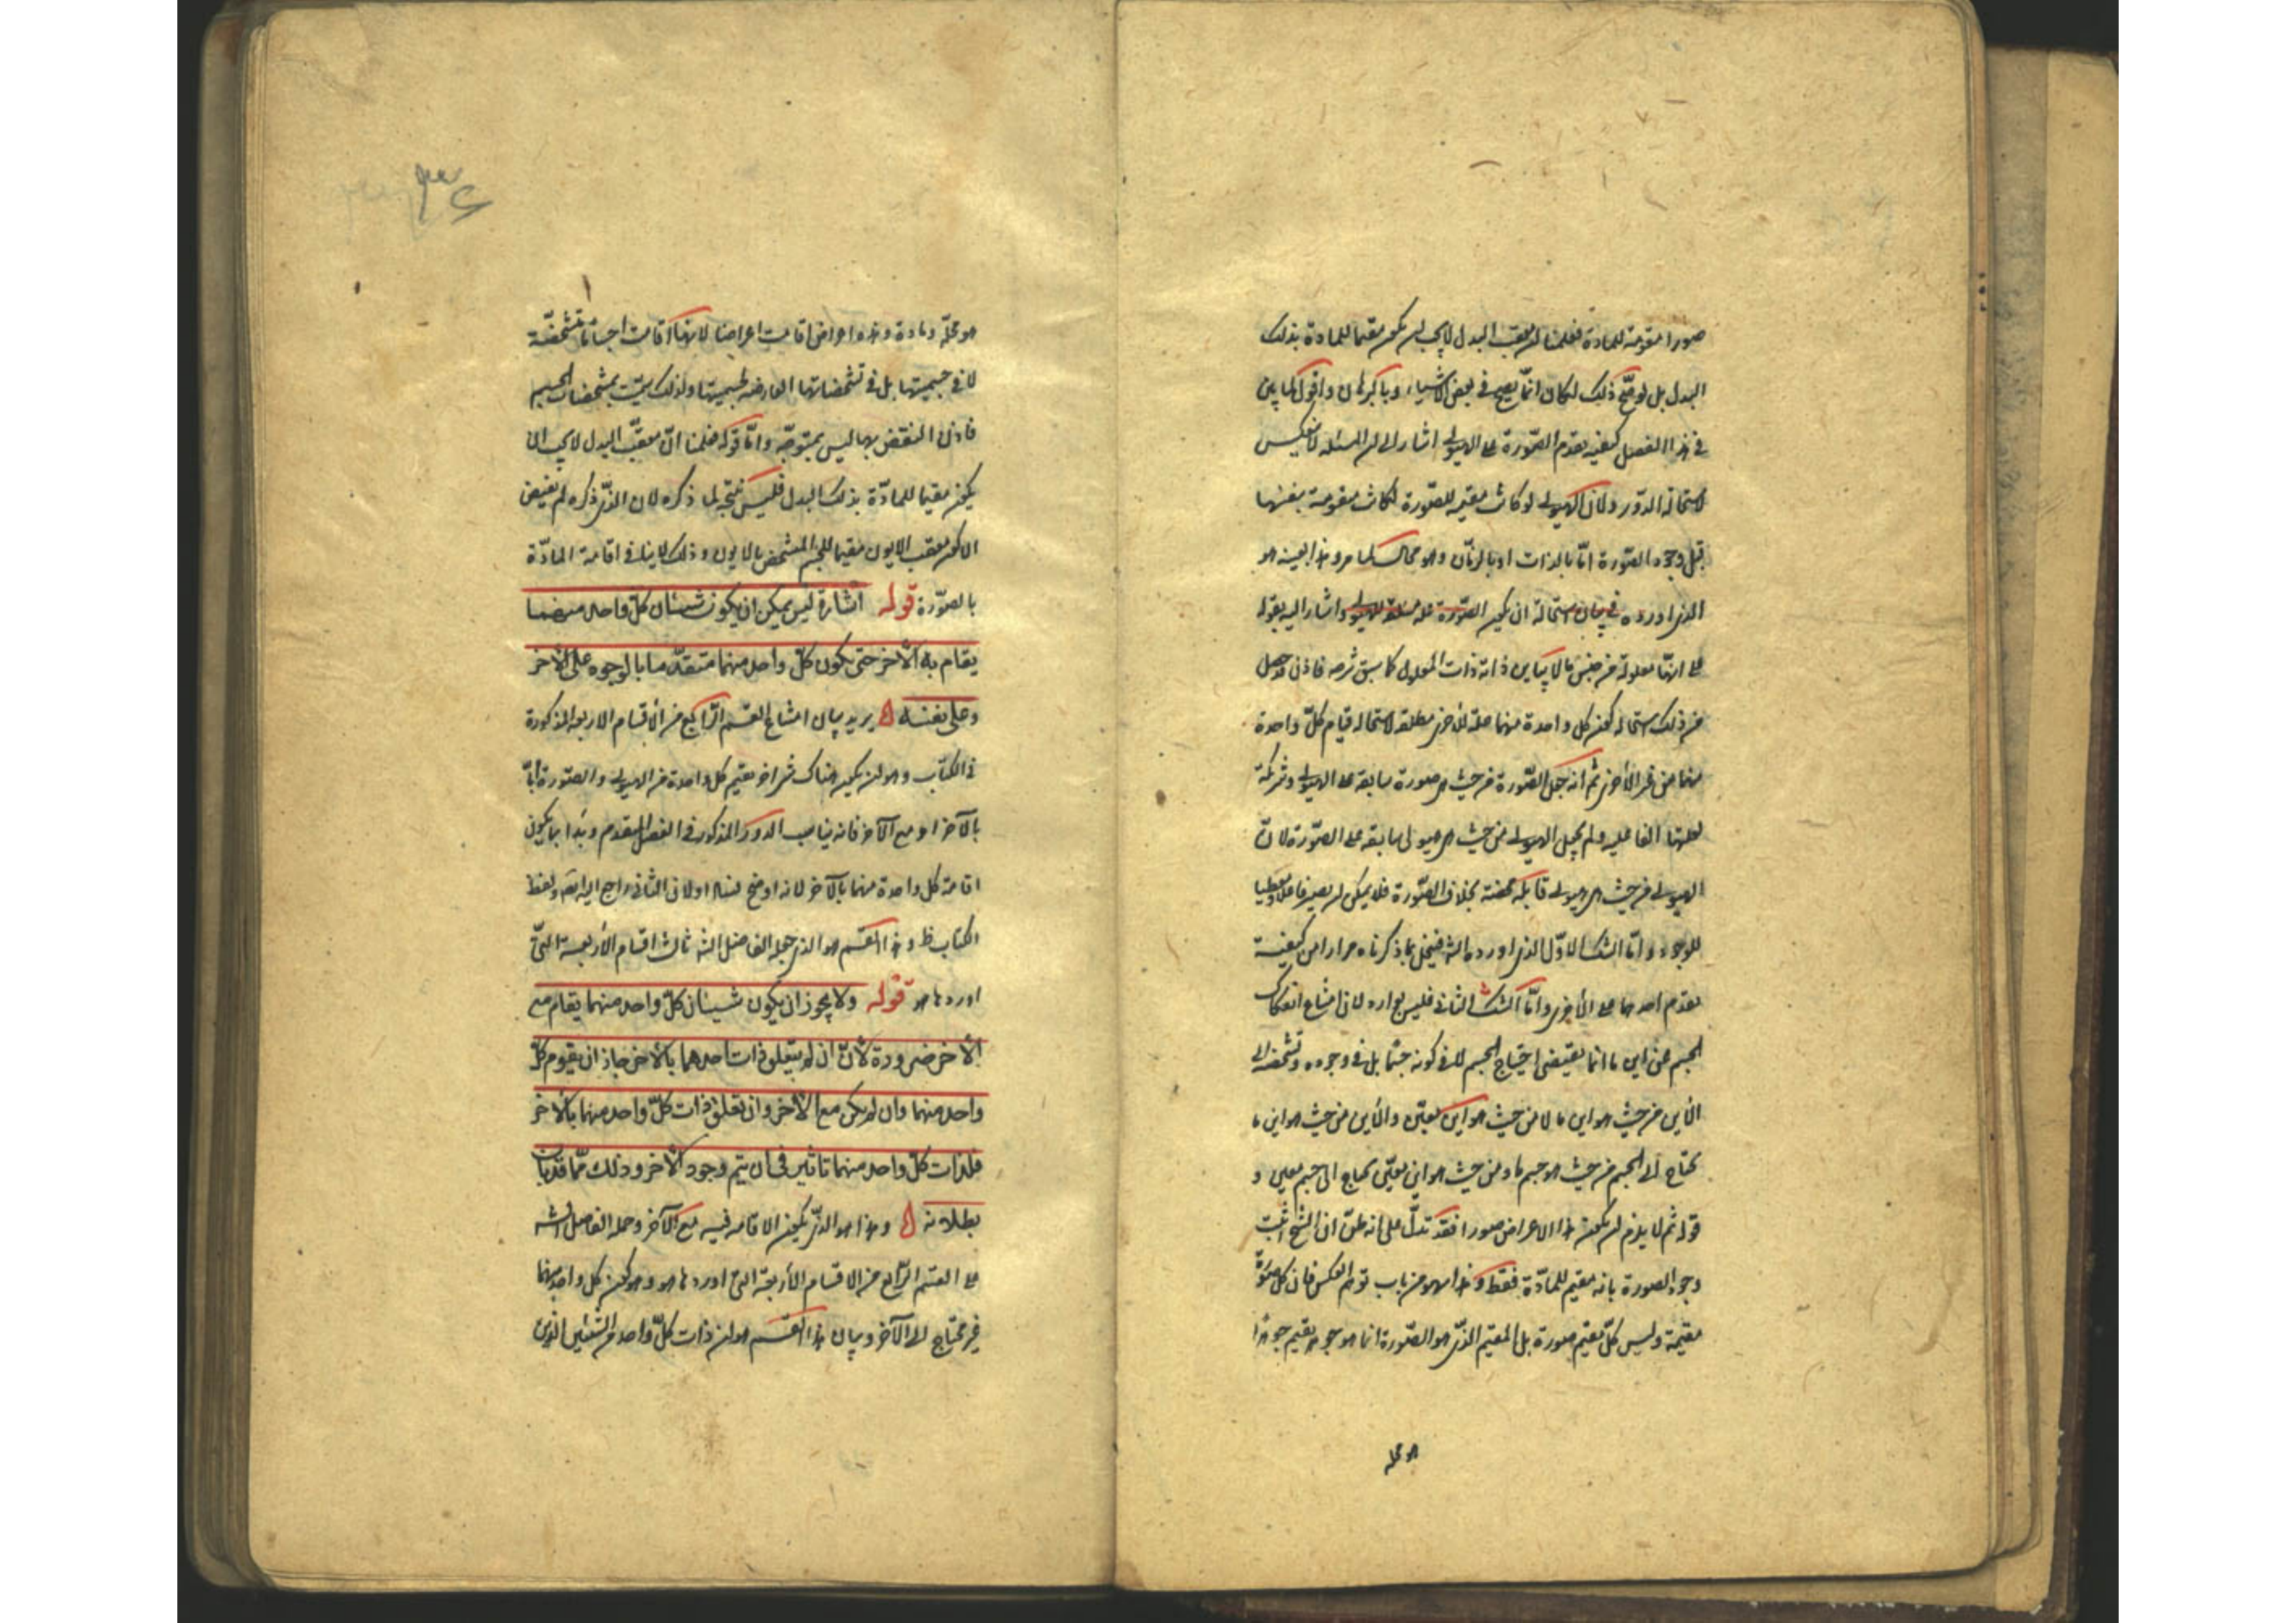 صورا مقومة للمادة فعلمنا ان معقب البدل لا يجب ان يكون مقيما للمادة بذلك
البدل بل لو صح ذلك لكان انما يصح فى بعض الاشياء وبالبرهان واقول لما بين
فى هذا الفصل كيفية تقدم الصورة على الهيولى اشار الى ان المسئلة لا تنعكس
لاستحالة الدور ولان الهيولى لو كانت مقيمة للصورة لكانت متقومة بنفسها
قبل وجود الصورة اما بالذات او بالزمان وهو محال لما مر وهذا بعينه هو
الذى اورده فى بيان استحالة ان يكون الصورة علة مطلقة للهيولى واشار اليه بقوله
على انها معلولة من جنس ما لا يباين ذاته ذات المعلول كما سبق شرحه فاذن قد حصل
من ذلك استحالة كون كل واحدة منهما علة للاخرى مطلقة لاستحالة قيام كل واحدة
منهما من غير الاخرى ثم انه جعل الصورة من حيث هى صورة سابقة على الهيولى وشريكة
لعلتها الفاعلية ولم يجعل الهيولى من حيث هى هيولى سابقة على الصورة لان
الهيولى من حيث هى هيولى قابلة محضة بخلاف الصورة فلا يمكن ان يصير فاعلا ومعطيا
للوجود واما الشك الاول الذى اورده الش فينحل بما ذكرناه مرارا من كيفية
تقدم احدهما على الاخرى واما الشك الثانى فليس بوارد لان امتناع انفكاك
الجسم عن اين ما انما يقتضى احتياج الجسم لا فى كونه جسما بل فى وجوده وتشخصه الى
الاين من حيث هو اين ما لا من حيث هو اين معين والاين من حيث هو اين ما
يحتاج الى الجسم من حيث هو جسم ما ومن حيث هو اين معين يحتاج الى جسم معين و
قوله ثم لا يلزم ان يكون هذا الاعراض صورا فقد تدل على انه ظن ان الشيخ اثبت
وجود الصورة بانه مقيم للمادة فقط وهذا سهو من باب توهم العكس فان كل صورة
مقيمة وليس كل مقيم صورة بل المقيم الذى هو الصورة انما هو جوهر يقيم جوهرا
هو محله
٣٤
هو محله ومادة وهذه اعراض اقامت اعراضا لانها اقامت اجساما متشخصة
لا فى جسميتها بل فى تشخصاتها العارضة لجسميتها ولذلك سميت بمشخصات الجسم
فاذن النقض بها ليس بمتوجه واما قوله فعلمنا ان معقب البدل لا يجب ان
يكون مقيما للمادة بذلك البدل فليس نتيجة لما ذكره لان الذى ذكره لم يقتض
الا كون معقب الايون مقيما للجسم المتشخص بالايون وذلك لا ينافى اقامة المادة
بالصورة قوله اشارة ليس يمكن ان يكون شيئان كل واحد منهما
يقام به الآخر حتى يكون كل واحد منهما متقدما بالوجود على الآخر
وعلى نفسه يريد بيان امتناع القسم الرابع من الاقسام الاربعة المذكورة
فى الكتاب وهو ان يكون هناك شئ اخر يقيم كل واحدة من الهيولى والصورة اما
بالآخر او مع الآخر فانه يناسب الدور المذكور فى الفصل المتقدم وبدأ بما يكون
اقامة كل واحدة منهما بالآخر لانه اوضح فسادا ولان الثانى راجع اليه ايضا ولفظ
الكتاب ظ وهذا القسم هو الذى جعله الفاضل الش ثالث اقسام الأربعة التى
اوردها هو قوله ولا يجوز ان يكون شيئان كل واحد منهما يقام مع
الآخر ضرورة لأن ان لم يتعلق ذات احدهما بالآخر جاز ان يقوم كل
واحد منهما وان لم يكن مع الآخر وان تعلق ذات كل واحد منهما بالآخر
فلذات كل واحد منهما تاثير فى ان يتم وجود الآخر وذلك مما قد بان
بطلانه وهذا هو الذى يكون الاقامة فيه مع الآخر وحمله الفاضل الش
على القسم الرابع من الاقسام الأربعة التى اوردها هو وهو كون كل واحد منهما
غير محتاج الى الآخر وبيان هذا القسم هو ان ذات كل واحد من الشيئين الذين